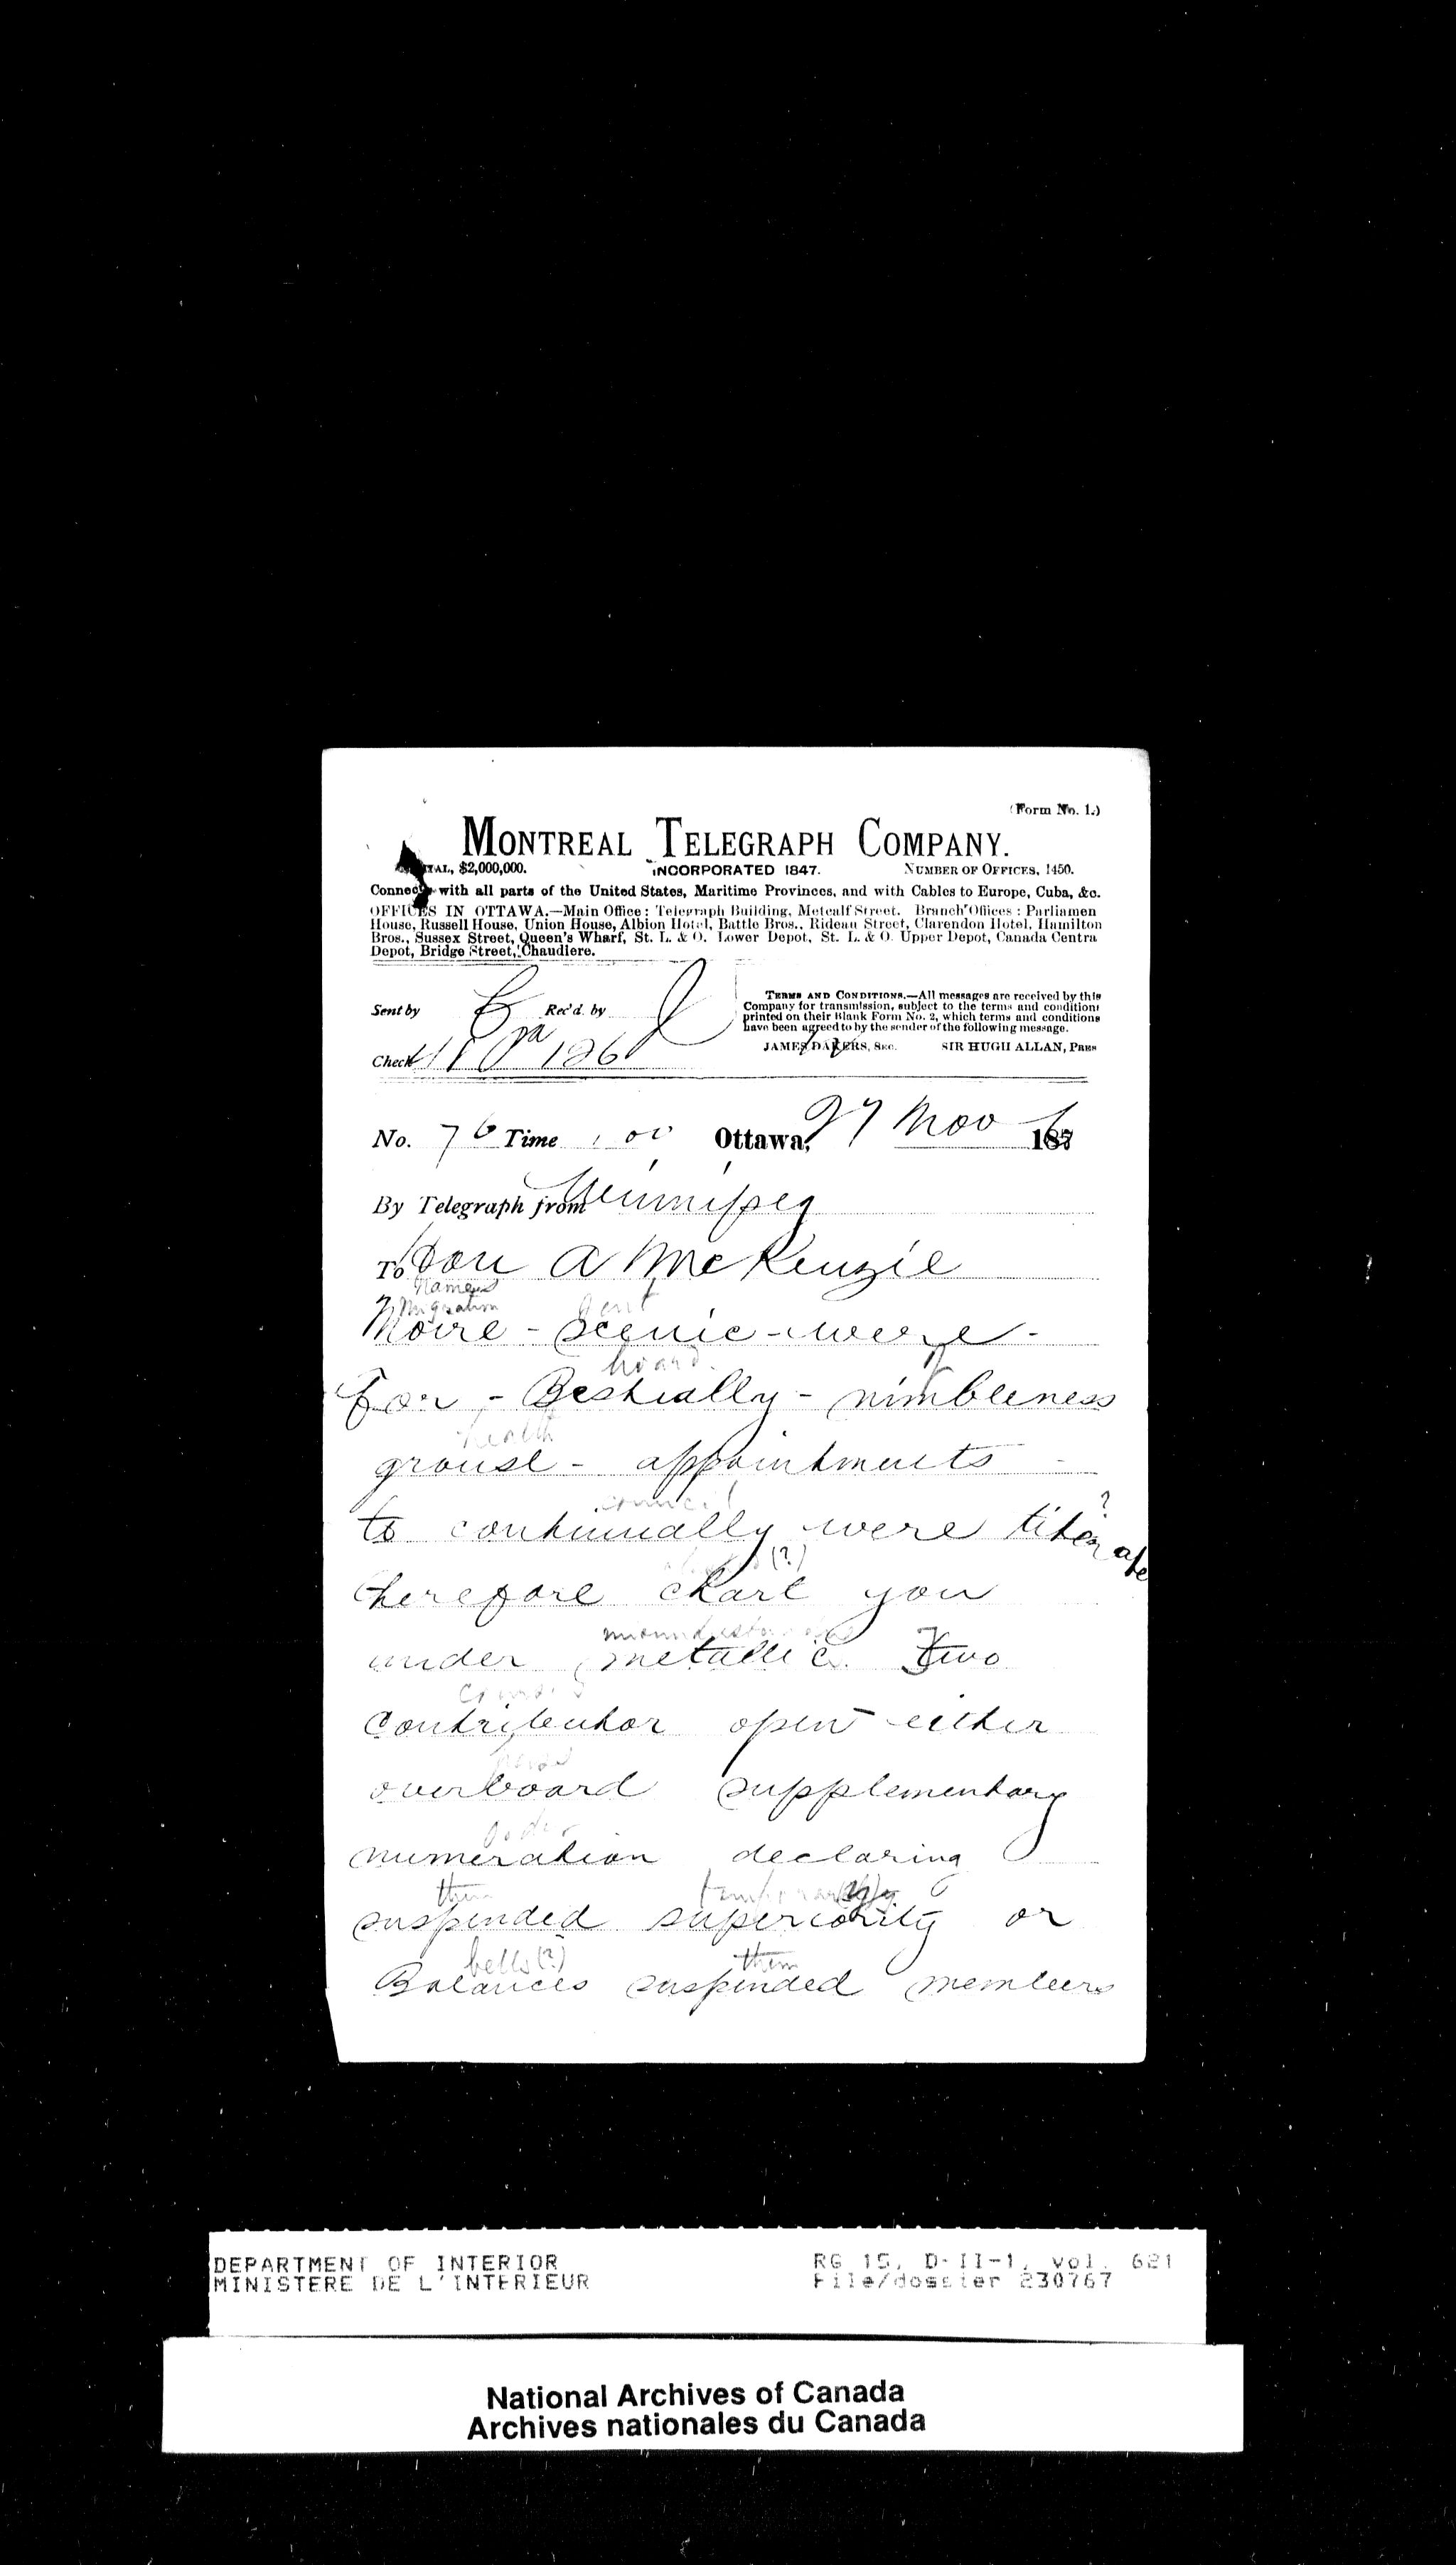 (Form No. 1.)
MONTREAL TELEGRAPH COMPANY.
TAL, $2,000,000. INCORPORATED 1847. NUMBER OF OFFICES, 1450.
Connec with all parts of the United States, Maritime Provinces, and with Cables to Europe, Cuba, &c.
OFFICES IN OTTAWA.—Main Office: Telegraph Building, Metcalf Street. Branch Offices: Parliamen
House, Russell House, Union House, Albion Hotel, Battle Bros., Rideau Street, Clarendon Hotel, Hamilton
Bros., Sussex Street, Queen's Wharf, St. L. & O. Lower Depot, St. L. & O. Upper Depot, Canada Centra
Depot, Bridge Street, Chaudiere.
TERMS AND CONDITIONS.—All messages are received by this
Company for transmission, subject to the terms and conditions
printed on their Blank Form No. 2, which terms and conditions
have been agreed to by the sender of the following message.
JAMES DAKERS, SEC. SIR HUGH ALLAN, PRES
Sent by Rec'd. by
Check
No. 76 Time Ottawa, 27 Nov 1876
By Telegraph from Winnipeg
To Hon A McKenzie
names
migration
Moire - scenic - were -
board
for - Bestially - nimbleness
health
grouse - appointments -
council ?
to continually were
(?)
therefore chart you
under metallic Two
contributor open either
overboard supplementary
order
numeration declaring
them
suspended superiority or
bells (?) them
Balances suspended members
DEPARTMENT OF INTERIOR RG 15, D-II-1, vol. 621
MINISTERE DE L'INTERIEUR File/dossier 230767
National Archives of Canada
Archives nationales du Canada